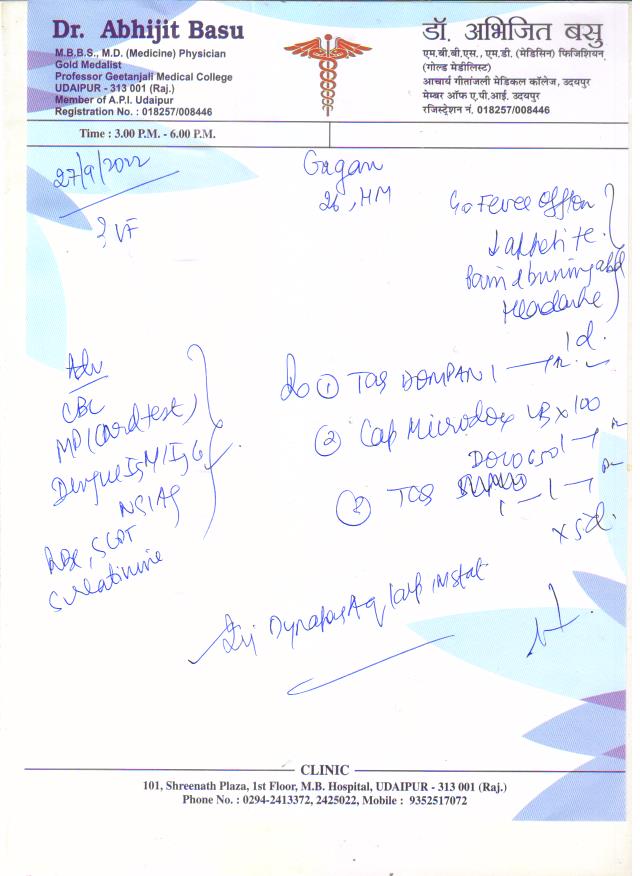 Dr. Abhijit Basu
M.B.B.S., M.D. (Medicine) Physician
Gold Medalist
Professor Geetanjali Medical College
UDAIPUR - 313 001 (Raj.)
Member of A.P.I. Udaipur
Registration No. : 018257/008446
डॉ. अभिजित बसु
एम.बी.बी.एस., एम.डी. (मेडिसिन) फिजिशियन
(गोल्ड मेडीलिस्ट)
आचार्य गीतांजली मेडिकल कॉलेज, उदयपुर
मेम्बर ऑफ ए.पी.आई. उदयपुर
रजिस्ट्रेशन नं. 018257/008446
Time : 3.00 P.M. - 6.00 P.M.
27/9/2022
Gagan
26,
? VF
Fever off/on
↓ appetite
Pain & burning abd
Headache
Adv
CBC
MP (Card test)
Dengue IgM/IgG
NS1 Ag
RBS, SGOT
S creatinine
① TAB DOMPAN 1
② Cap Microdox LB x 100
DOLO 650
③ TAB
1 - 1 - 1
x 5d.
Inj Dynapar Aq 1 amp IM stat
CLINIC
101, Shreenath Plaza, 1st Floor, M.B. Hospital, UDAIPUR - 313 001 (Raj.)
Phone No. : 0294-2413372, 2425022, Mobile : 9352517072